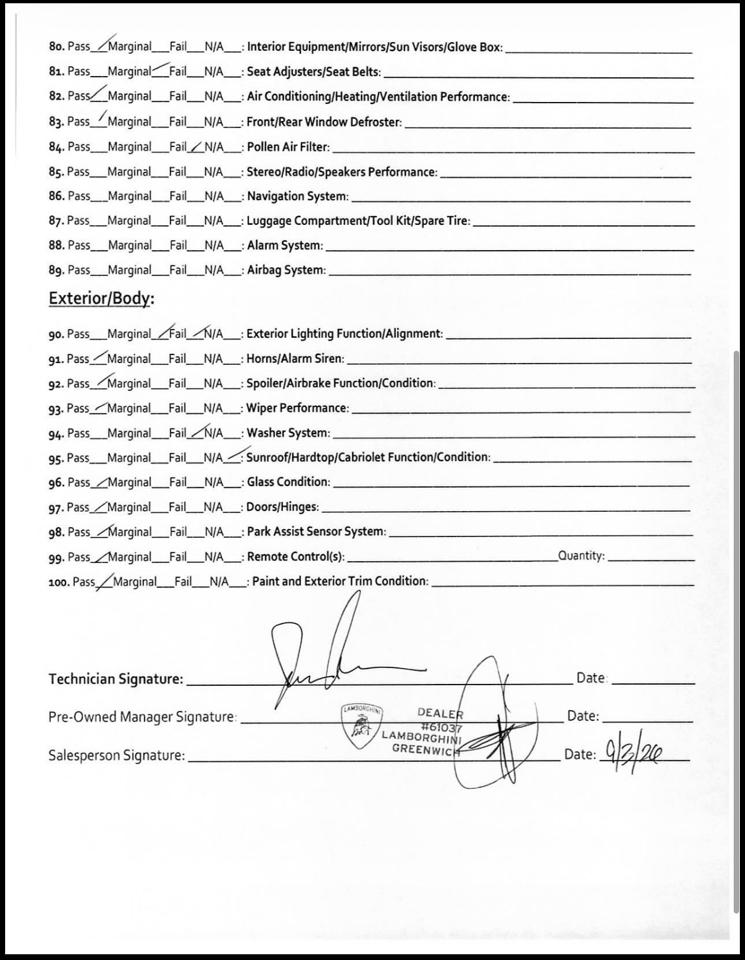 80. Pass__✓Marginal___Fail___N/A___: Interior Equipment/Mirrors/Sun Visors/Glove Box:
81. Pass___Marginal__✓Fail___N/A___: Seat Adjusters/Seat Belts:
82. Pass__✓Marginal___Fail___N/A___: Air Conditioning/Heating/Ventilation Performance:
83. Pass__✓Marginal___Fail___N/A___: Front/Rear Window Defroster:
84. Pass___Marginal___Fail__✓N/A___: Pollen Air Filter:
85. Pass___Marginal___Fail___N/A___: Stereo/Radio/Speakers Performance:
86. Pass___Marginal___Fail___N/A___: Navigation System:
87. Pass___Marginal___Fail___N/A___: Luggage Compartment/Tool Kit/Spare Tire:
88. Pass___Marginal___Fail___N/A___: Alarm System:
89. Pass___Marginal___Fail___N/A___: Airbag System:
Exterior/Body:
90. Pass___Marginal__✓Fail__✓N/A___: Exterior Lighting Function/Alignment:
91. Pass__✓Marginal___Fail___N/A___: Horns/Alarm Siren:
92. Pass__✓Marginal___Fail___N/A___: Spoiler/Airbrake Function/Condition:
93. Pass__✓Marginal___Fail___N/A___: Wiper Performance:
94. Pass___Marginal___Fail__✓N/A___: Washer System:
95. Pass___Marginal___Fail___N/A__✓: Sunroof/Hardtop/Cabriolet Function/Condition:
96. Pass__✓Marginal___Fail___N/A___: Glass Condition:
97. Pass__✓Marginal___Fail___N/A___: Doors/Hinges:
98. Pass__✓Marginal___Fail___N/A___: Park Assist Sensor System:
99. Pass__✓Marginal___Fail___N/A___: Remote Control(s): Quantity:
100. Pass__✓Marginal___Fail___N/A___: Paint and Exterior Trim Condition:
Technician Signature: Date:
Pre-Owned Manager Signature: Date:
LAMBORGHINI
DEALER
#61037
LAMBORGHINI
GREENWICH
Salesperson Signature: Date: 9/3/26